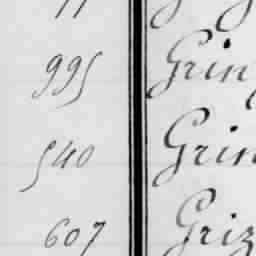 995 Grin
540 Grin
607 Griz